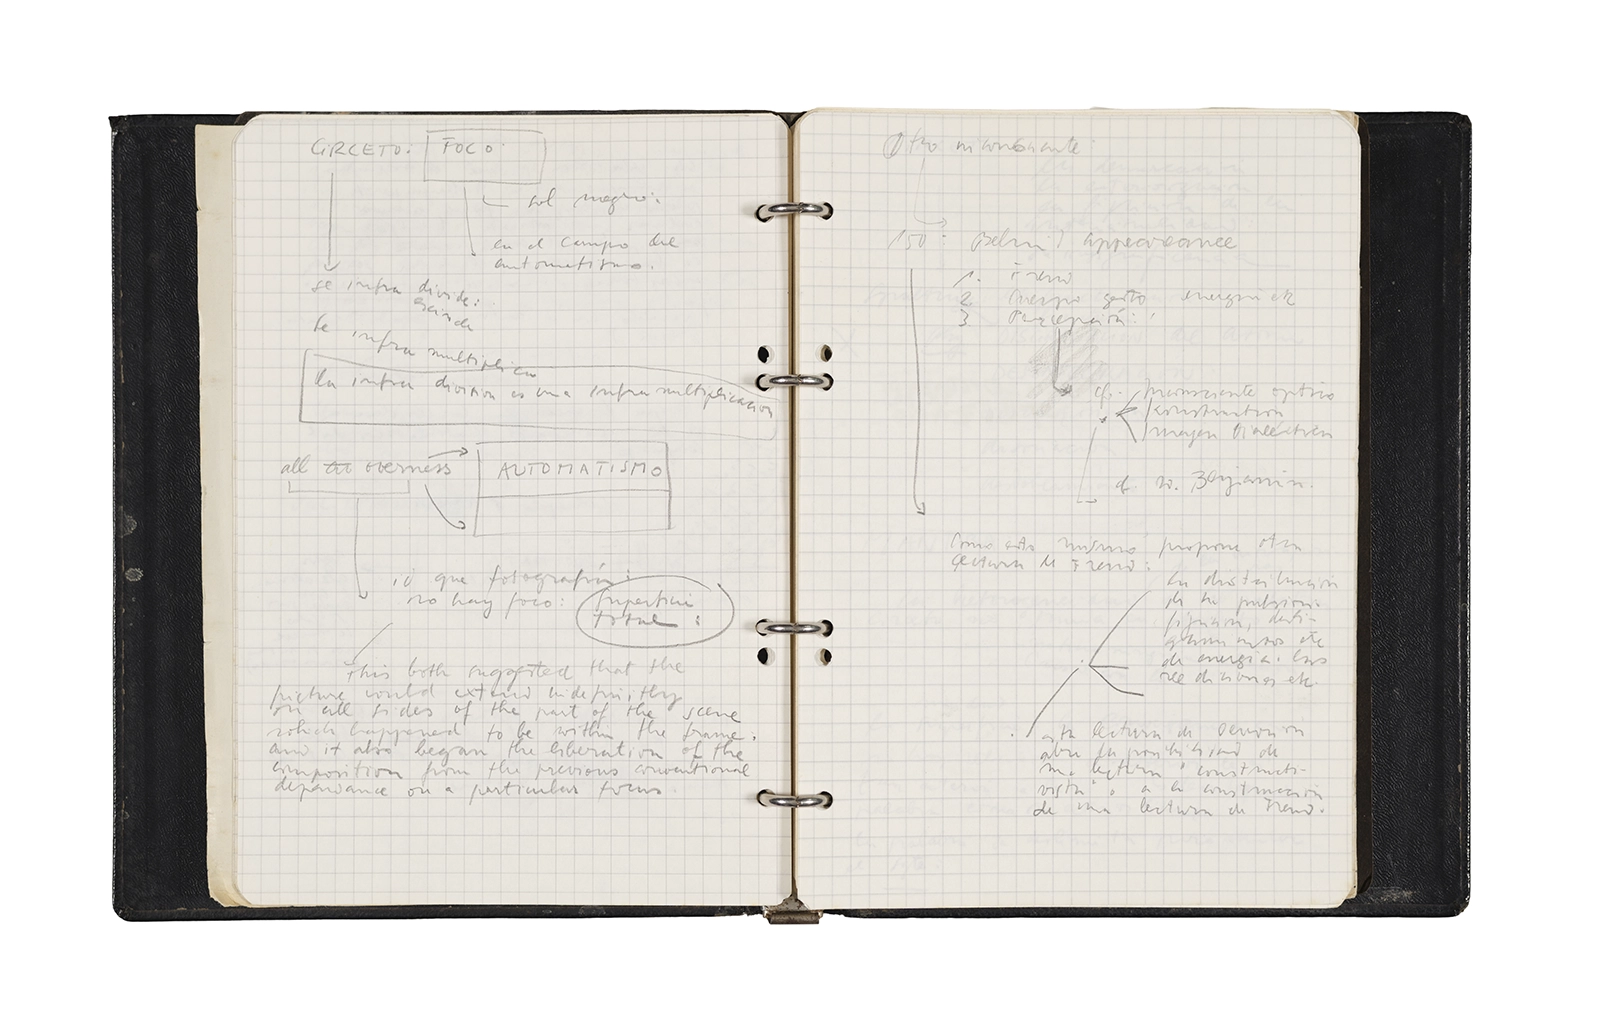 CIRCETO: FOCO:
sol negro:
en el campo del
automatismo.
se infra divide:
escinde
se infra multiplica
la infra division es una infra multiplicacion
all overness AUTOMATISMO
que fotografía:
no hay foco: superficie
total:
This both suggested that the
picture would extend indefinitly
on all sides of the part of the scene
which happened to be within the frame:
and it also began the liberation of the
composition from the previous conventional
dependance on a particular focus.
Otro inconsciente:
150: Behind appearance
1. Freud
2. Cuerpo gesto
3. Percepción:
cf. inconsciente optico
construction
imagen dialectica
cf. W. Benjamin.
Como esto mismo propone otra
lectura de Freud:
la distribución
de la pulsion:
de energia. Las
etc.
esta lectura de
abre la posibilidad de
una lectura "constructi-
vista" o a la construcción
de una lectura de Freud.